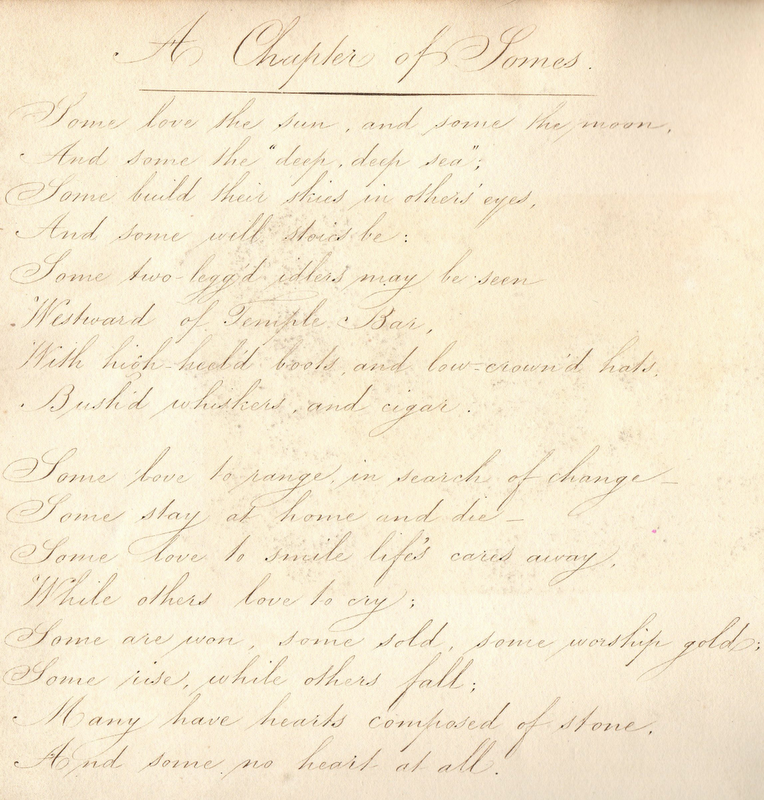 A Chapter of Somes.
Some love the sun, and some the moon,
And some the "deep, deep sea";
Some build their skies in others' eyes,
And some will stoics be:
Some two-legg'd idlers may be seen
Westward of Temple Bar,
With high-heel'd boots, and low-crown'd hats,
Bush'd whiskers, and cigar.
Some love to range, in search of change—
Some stay at home and die—
Some love to smile life's cares away,
While others love to cry;
Some are won, some sold, some worship gold;
Some rise, while others fall;
Many have hearts composed of stone,
And some no heart at all.